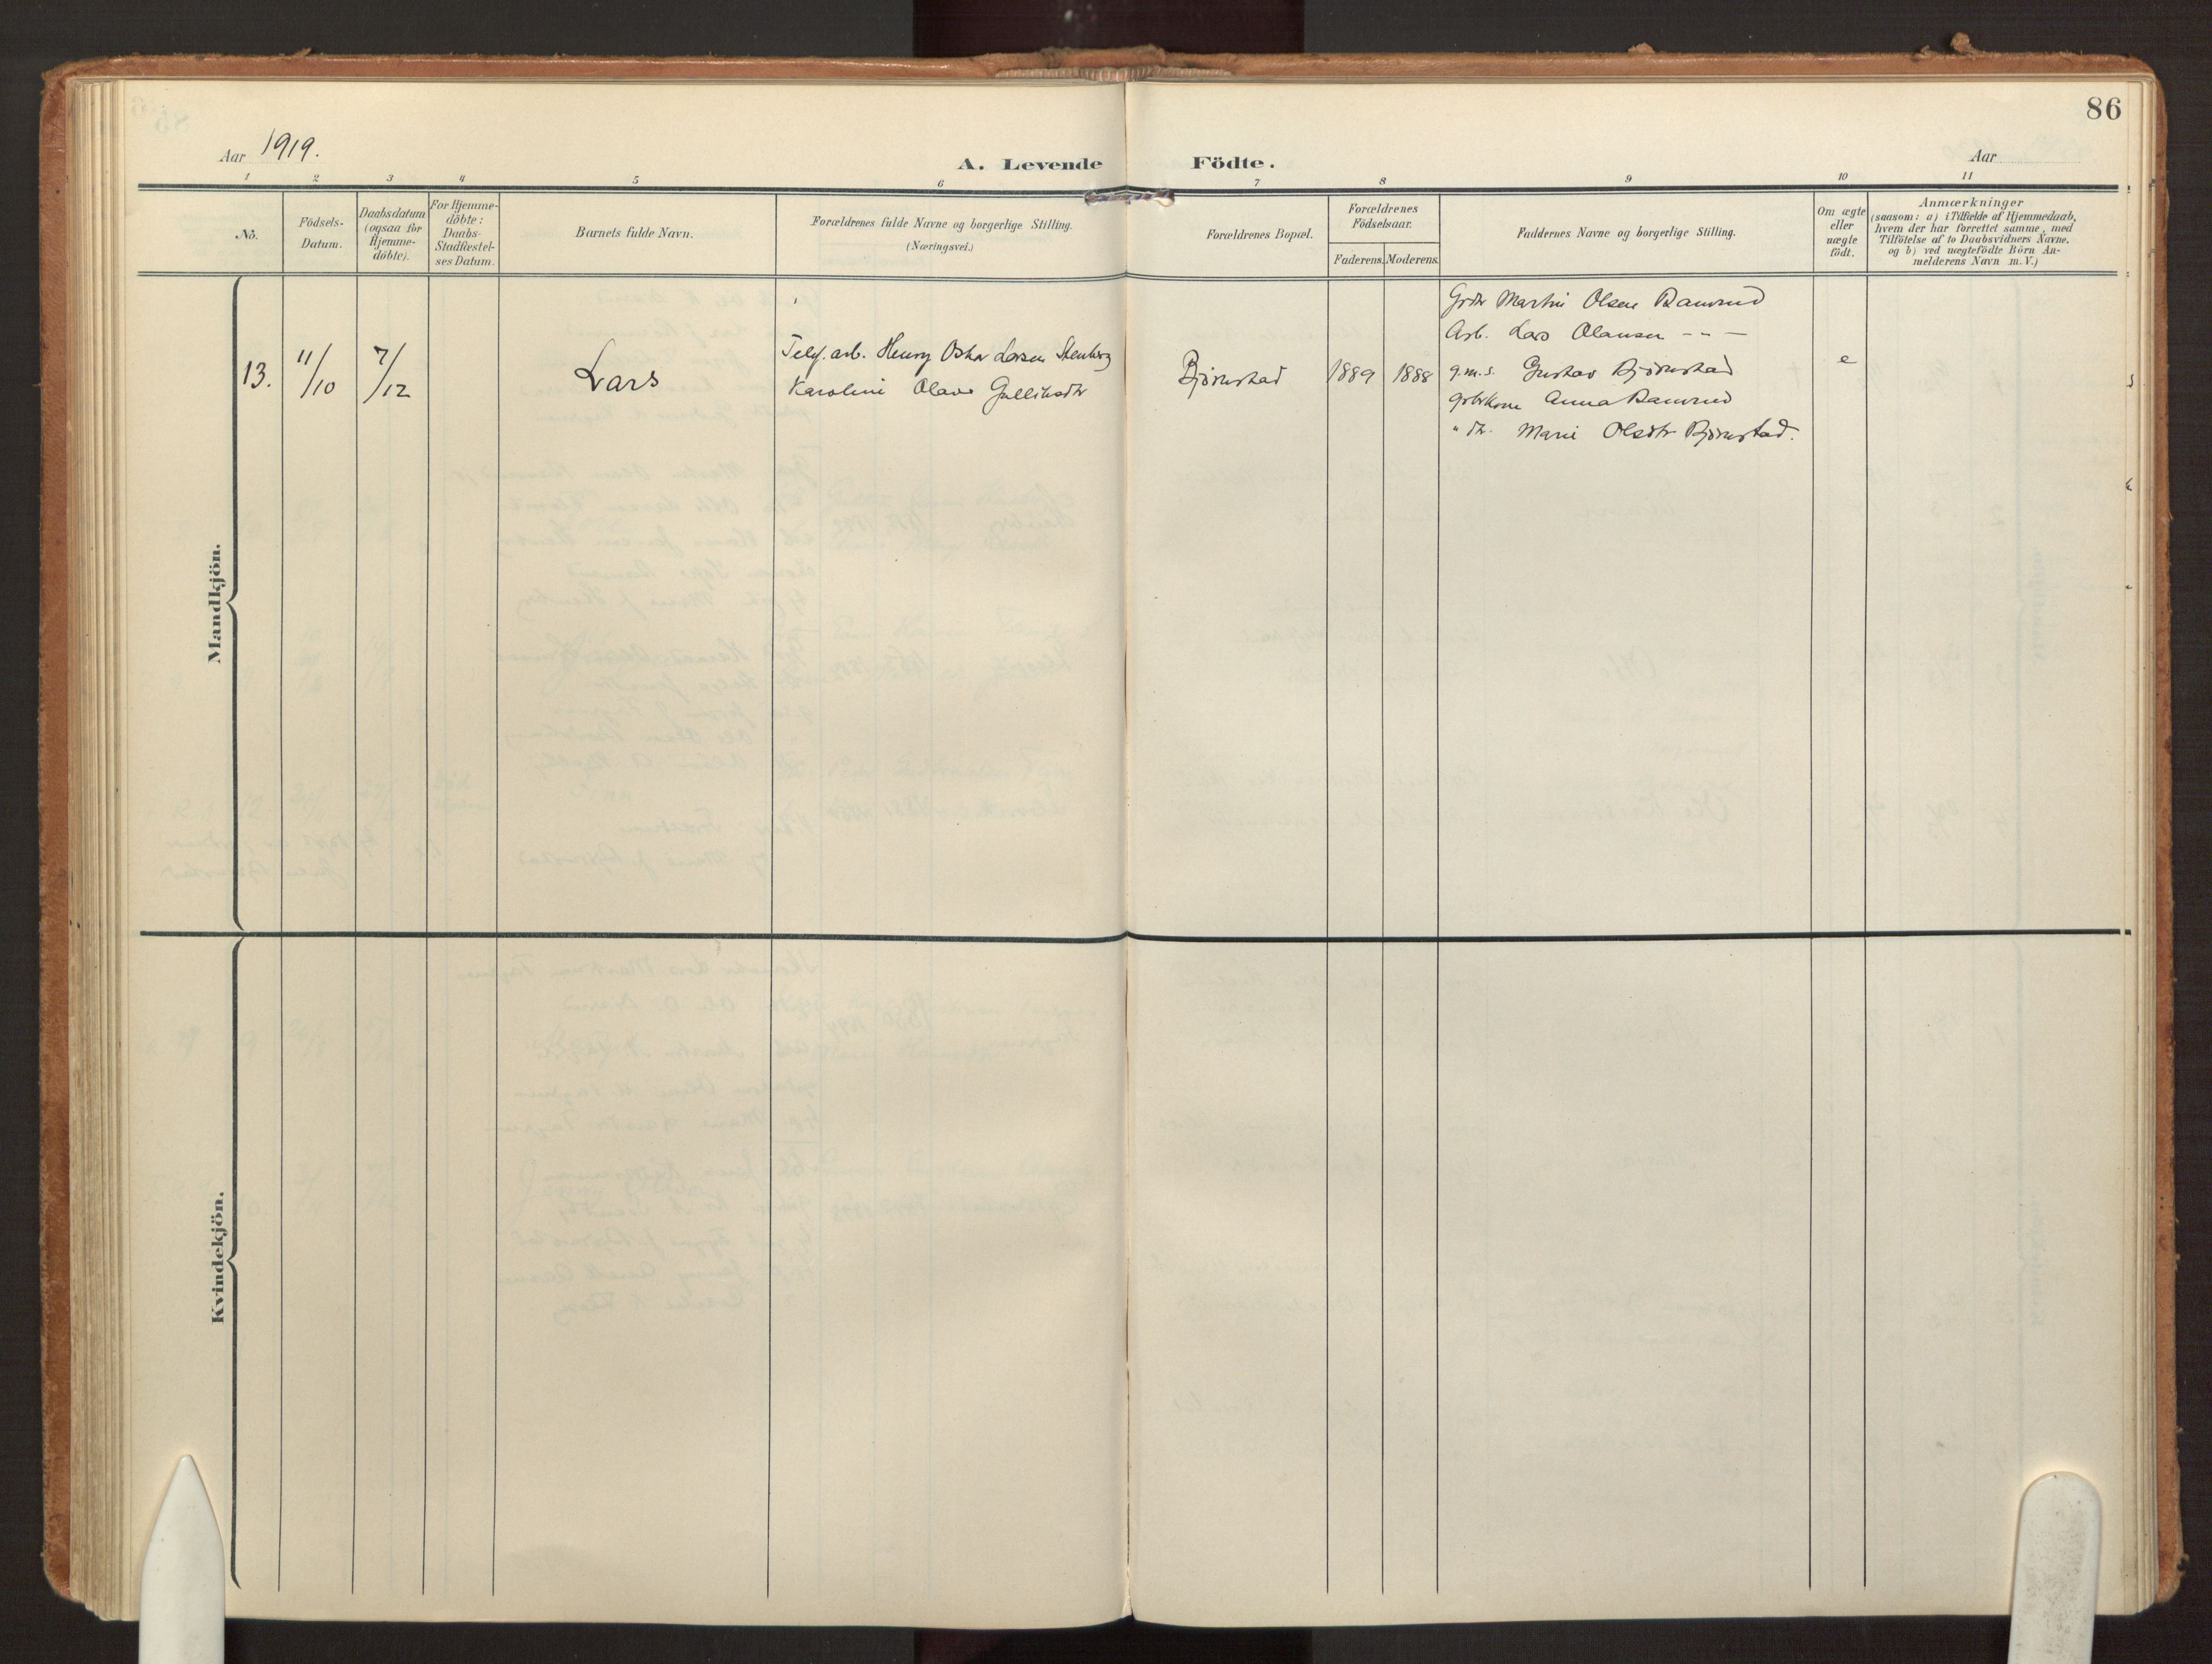 86
Aar 1919.
A. Levende Födte.
Aar
1 2 3 4 5 6 7 8 9 10 11
No.
Födsels-
Datum.
Daabsdatum
(ogsaa for
Hjemme-
döbte).
For Hjemme-
döbte:
Daabs-
Stadfæstel-
ses Datum.
Barnets fulde Navn.
Forældrenes fulde Navne og borgerlige Stilling.
(Næringsvei.)
Forældrenes Bopæl.
Forældrenes
Födselsaar.
Faderens. Moderens.
Faddernes Navne og borgerlige Stilling.
Om ægte
eller
uægte
födt.
Anmærkninger
(saasom: a) i Tilfælde af Hjemmedaab,
hvem der har forrettet samme, med
Tilföielse af to Daabsvidners Navne.
og b) ved uægtefödte Börn An-
melderens Navn m. V.)
Mandkjön.
13.
11/10
7/12
Lars
Telef. arb. Henry Oskar Larsen Stenberg
Karoline Olava Gulliksdtr
Bjørnstad
1889
1888
Grdbr Martin Olsen Ramsrud
Arb. Lars Olausen - - -
g.m.s. Gustav Bjørnstad
grbrkone Anna Ramsrud
" dtr. Marie Olsdtr Bjørnstad.
e
Kvindekjön.